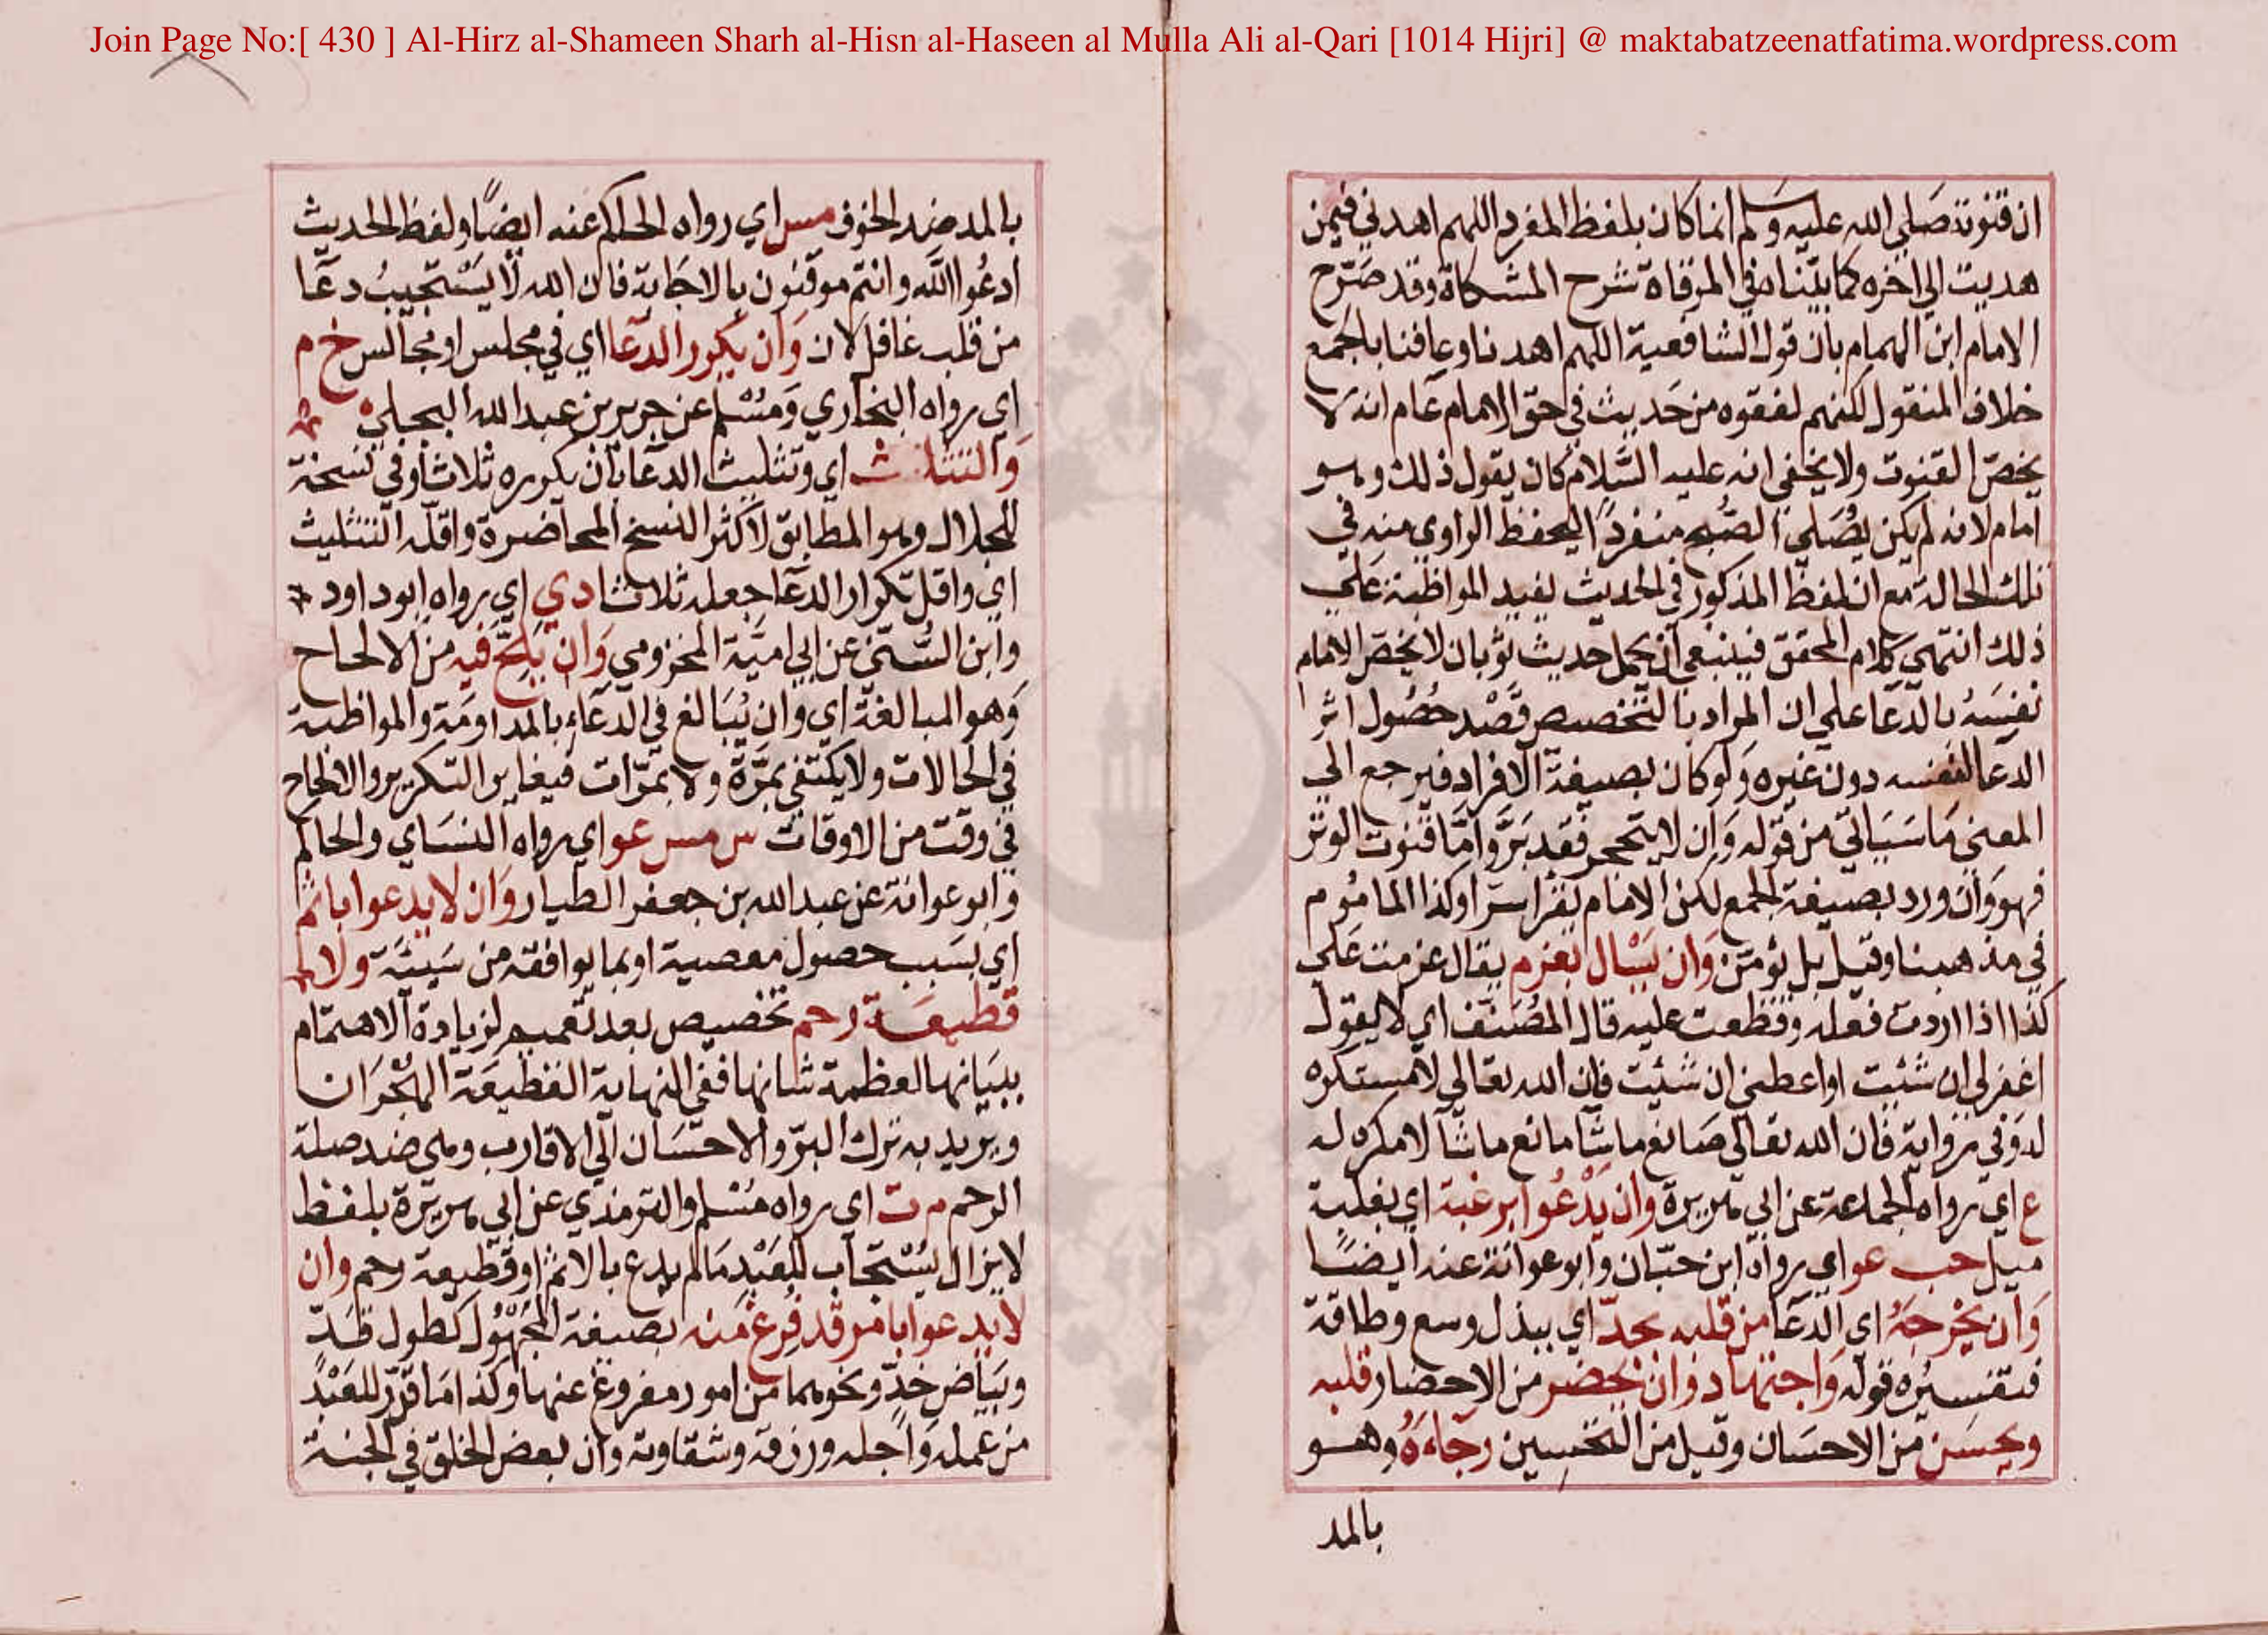 Join Page No:[ 430 ] Al-Hirz al-Shameen Sharh al-Hisn al-Haseen al Mulla Ali al-Qari [1014 Hijri] @ maktabatzeenatfatima.wordpress.com
ان قنوته صلي الله عليه وسلم انما كان بلفظ المفرد اللهم اهدني فيمن
هديت الي اخره كما بيّناه في المرقاة شرح المشكاة وقد صَرّح
الامام ابن الهمام بان قول الشافعية اللهم اهدنا وعافنا بالجَمع
خلاف المنقول لكنهم لفقوه من حَديث في حق الامام عام انه لا
يخصّ القنوت ولا يخفي انه عليه السَّلام كان يقول ذلك وهو
امام لانه لم يكن يُصَلي الصّبح منفردًا ليحفظ الراوي منه في
تلك الحالة مع ان لفظ المذكور في الحديث يفيد المواظبة عَلي
ذلك انتهي كلام المحقق فينبغي ان يحمل حديث ثوبان لا يخصّ الامام
نفسَهُ بالدّعا علي ان المراد بالتّخصيص قَصْد حُصُول اثر
الدعا لنفسه دون غيره وَلو كان بصيغة الافراد فيرجع الي
المعني مَا سَيَاتي من قوله وَان لا يتحجر فقد بَرَّ وامّا قنوت الوتر
فهو وَان ورد بصيغة الجمع لكن الامام يقرا سرّا وكذا الماموم
في مذهبنا وقيل بل يؤمّن وَان يَسْال بعزم يقال عزمت عَلي
كذا اذا اردت فعله وقطعت عليه قال المُصَنّف اي لا يقول
اغفر لي ان شئت او اعطني ان شئت فان الله تعالي لا مستكره
له وَفي رواية فان الله تعالي صَانع ما شآ مانع ما شآ لا مكره له
ع اي رواه الجماعة عن ابي هريرة وان يَدْعُوا برغبة اي بغلبة
ميل حب عو اي رواه ابن حبّان وابو عوانة عنه ايضًا
وَان يُخْرجَهُ اي الدّعا من قلبه بجدّ اي ببذل وسع وطاقة
فتفسيْره قوله وَاجتهاد وَان يحضر من الاحضار قلبه
ويحسَن من الاحسَان وقيل من التحسين رجَاءَهُ وهو
بالمد
بالمد ضد الخوف مس اي رواه الحاكم عنه ايضًا ولفظ الحديث
ادعُوا اللّٰه وانتم موقنون بالاجَابة فان الله لَا يَسْتجيبُ دعَآ
من قلب غافل لاه وَان يكرر الدعا اي في مجلس او مجالس خ م
اي رواه البخاري وَمُسْلم عن جرير بن عبد الله البجلي
وَالتثليث اي وتثليث الدعَا بان يكرره ثلاثا وفي نسخة
للجلال وهو المطابق لاكثر النسخ المحاضرة واقلّه التثليث
اي واقل تكرار الدعآ جعله ثلاثا د ي اي رواه ابو داود
وابن السُّني عن ابي اميّة المخزومي وَان يُلحّ فيه من الالحاح
وَهو المبالغة اي وان يُبَالغ في الدّعَاء بالمداومَة والمواظبة
في الحالات ولا يكتفي بمَرّة ولا بمرّات فيغاير التكرير والالحاح
في وقت من الاوقات س مس عو اي رواه النسَاي والحاكم
وَابو عوانة عن عبد الله بن جعفر الطيار وَان لا يدعوا باثم
اي بسَبب حصول معصية او بما يوافقه من سَيئة ولا
قطيعَة رحم تخصيص بعد تعميم لزيادة الاهتمام
ببيَانها لعظمة شانها ففي النهاية القطيعَة الهِجْرَان
ويريد به ترك البرّ والاحسَان الي الاقارب وهي ضد صلة
الرحم م ت اي رواه مُسْلم والترمذي عن ابي هريرَة بلفظ
لا يزال يُسْتجَاب للعَبْد مَا لم يدع بالاثم او قطيعة رحم وان
لا يدعوا بامر قد فرغ منه بصيغة المجْهُول كطول قَدّ
وبَيَاض خدّ ونحوهما من امور مفروغ عنها وكذا مَا قدّر للعَبْد
من عمله وَاجله ورزقه وشقاوته وان بعض الخلق في الجنة